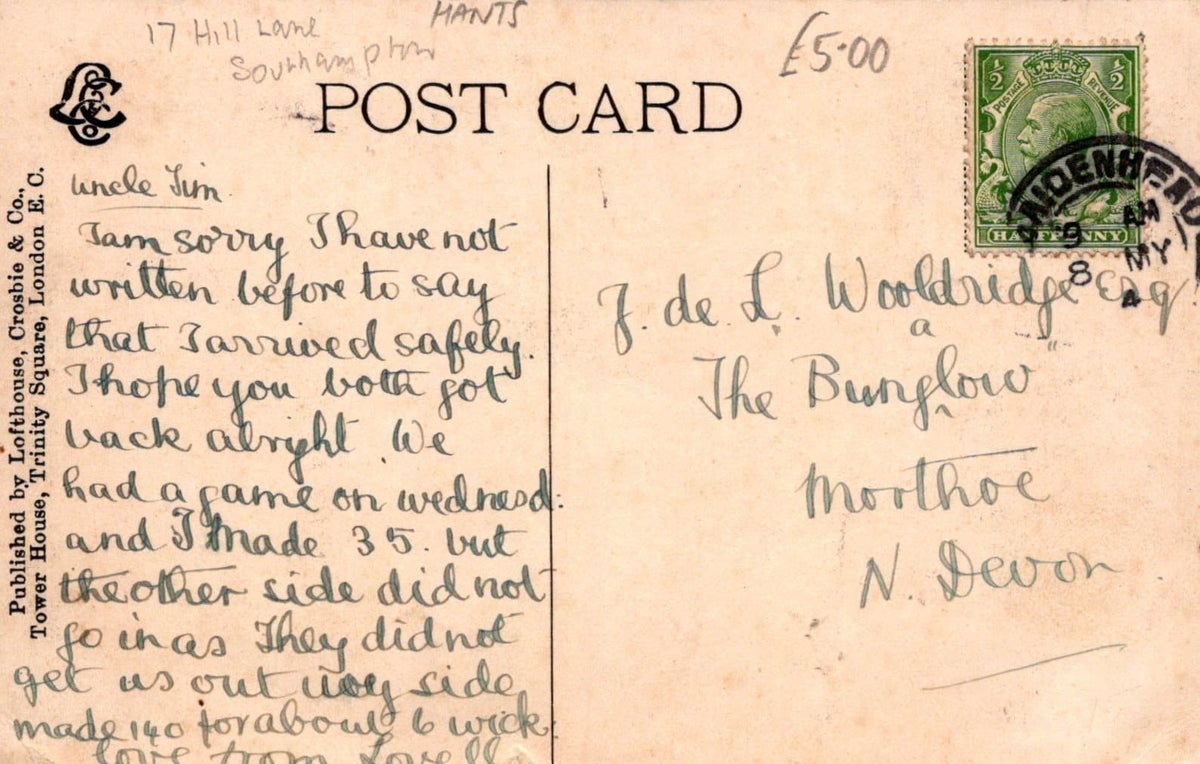 17 Hill Lane
Southampton
HANTS
£5.00
POST CARD
Published by Lofthouse, Crosbie & Co.,
Tower House, Trinity Square, London E. C.
uncle Tim.
I am sorry I have not
written before to say
that I arrived safely.
I hope you both got
back alright. We
had a game on wednesd:
and I made 35. but
the other side did not
go in as They did not
get us out my side
made 140 for about 6 wick
love from Lovell
½ ½
POSTAGE REVENUE
HALFPENNY
MAIDENHEAD
9 AM
8 MY
4
J. de L. Wooldridge Esq
a
The Bunglow
Morthoe
N. Devon